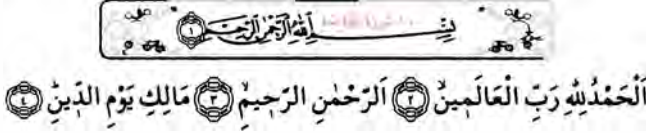 بِسْمِ اللّٰهِ الرَّحْمٰنِ الرَّحِيمِ ﴿١﴾
اَلْحَمْدُ لِلّٰهِ رَبِّ الْعَالَمٖينَۙ ﴿٢﴾ اَلرَّحْمٰنِ الرَّحٖيمِۙ ﴿٣﴾ مَالِكِ يَوْمِ الدّٖينِۜ ﴿٤﴾